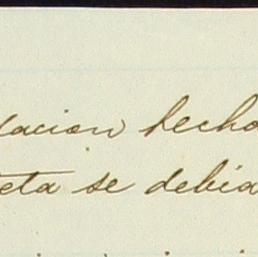 lacion hecha
eta se debia